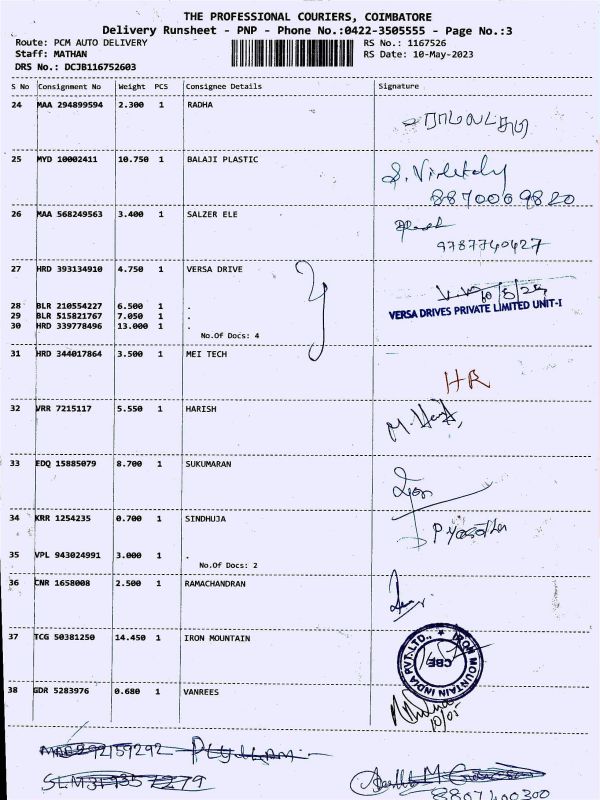 THE PROFESSIONAL COURIERS, COIMBATORE
Delivery Runsheet - PNP - Phone No.:0422-3505555 - Page No.:3
Route: PCM AUTO DELIVERY RS No.: 1167526
Staff: MATHAN RS Date: 10-May-2023
DRS No.: DCJB116752603
S No Consignment No Weight PCS Consignee Details Signature
24 MAA 294899594 2.300 1 RADHA
25 MYD 10002411 10.750 1 BALAJI PLASTIC
8870009820
26 MAA 568249563 3.400 1 SALZER ELE
9787740427
27 HRD 393134910 4.750 1 VERSA DRIVE
VERSA DRIVES PRIVATE LIMITED UNIT-I
28 BLR 210554227 6.500 1 .
29 BLR 515821767 7.050 1 .
30 HRD 339778496 13.000 1 .
No.Of Docs: 4
31 HRD 344017864 3.500 1 MEI TECH
HR
32 VRR 7215117 5.550 1 HARISH
33 EDQ 15885079 8.700 1 SUKUMARAN
34 KRR 1254235 0.700 1 SINDHUJA
35 VPL 943024991 3.000 1 .
No.Of Docs: 2
36 CNR 1658008 2.500 1 RAMACHANDRAN
37 TCG 50381250 14.450 1 IRON MOUNTAIN
IRON MOUNTAIN INDIA PVT. LTD.
CBE
38 GDR 5283976 0.680 1 VANREES
10/05
8807400300